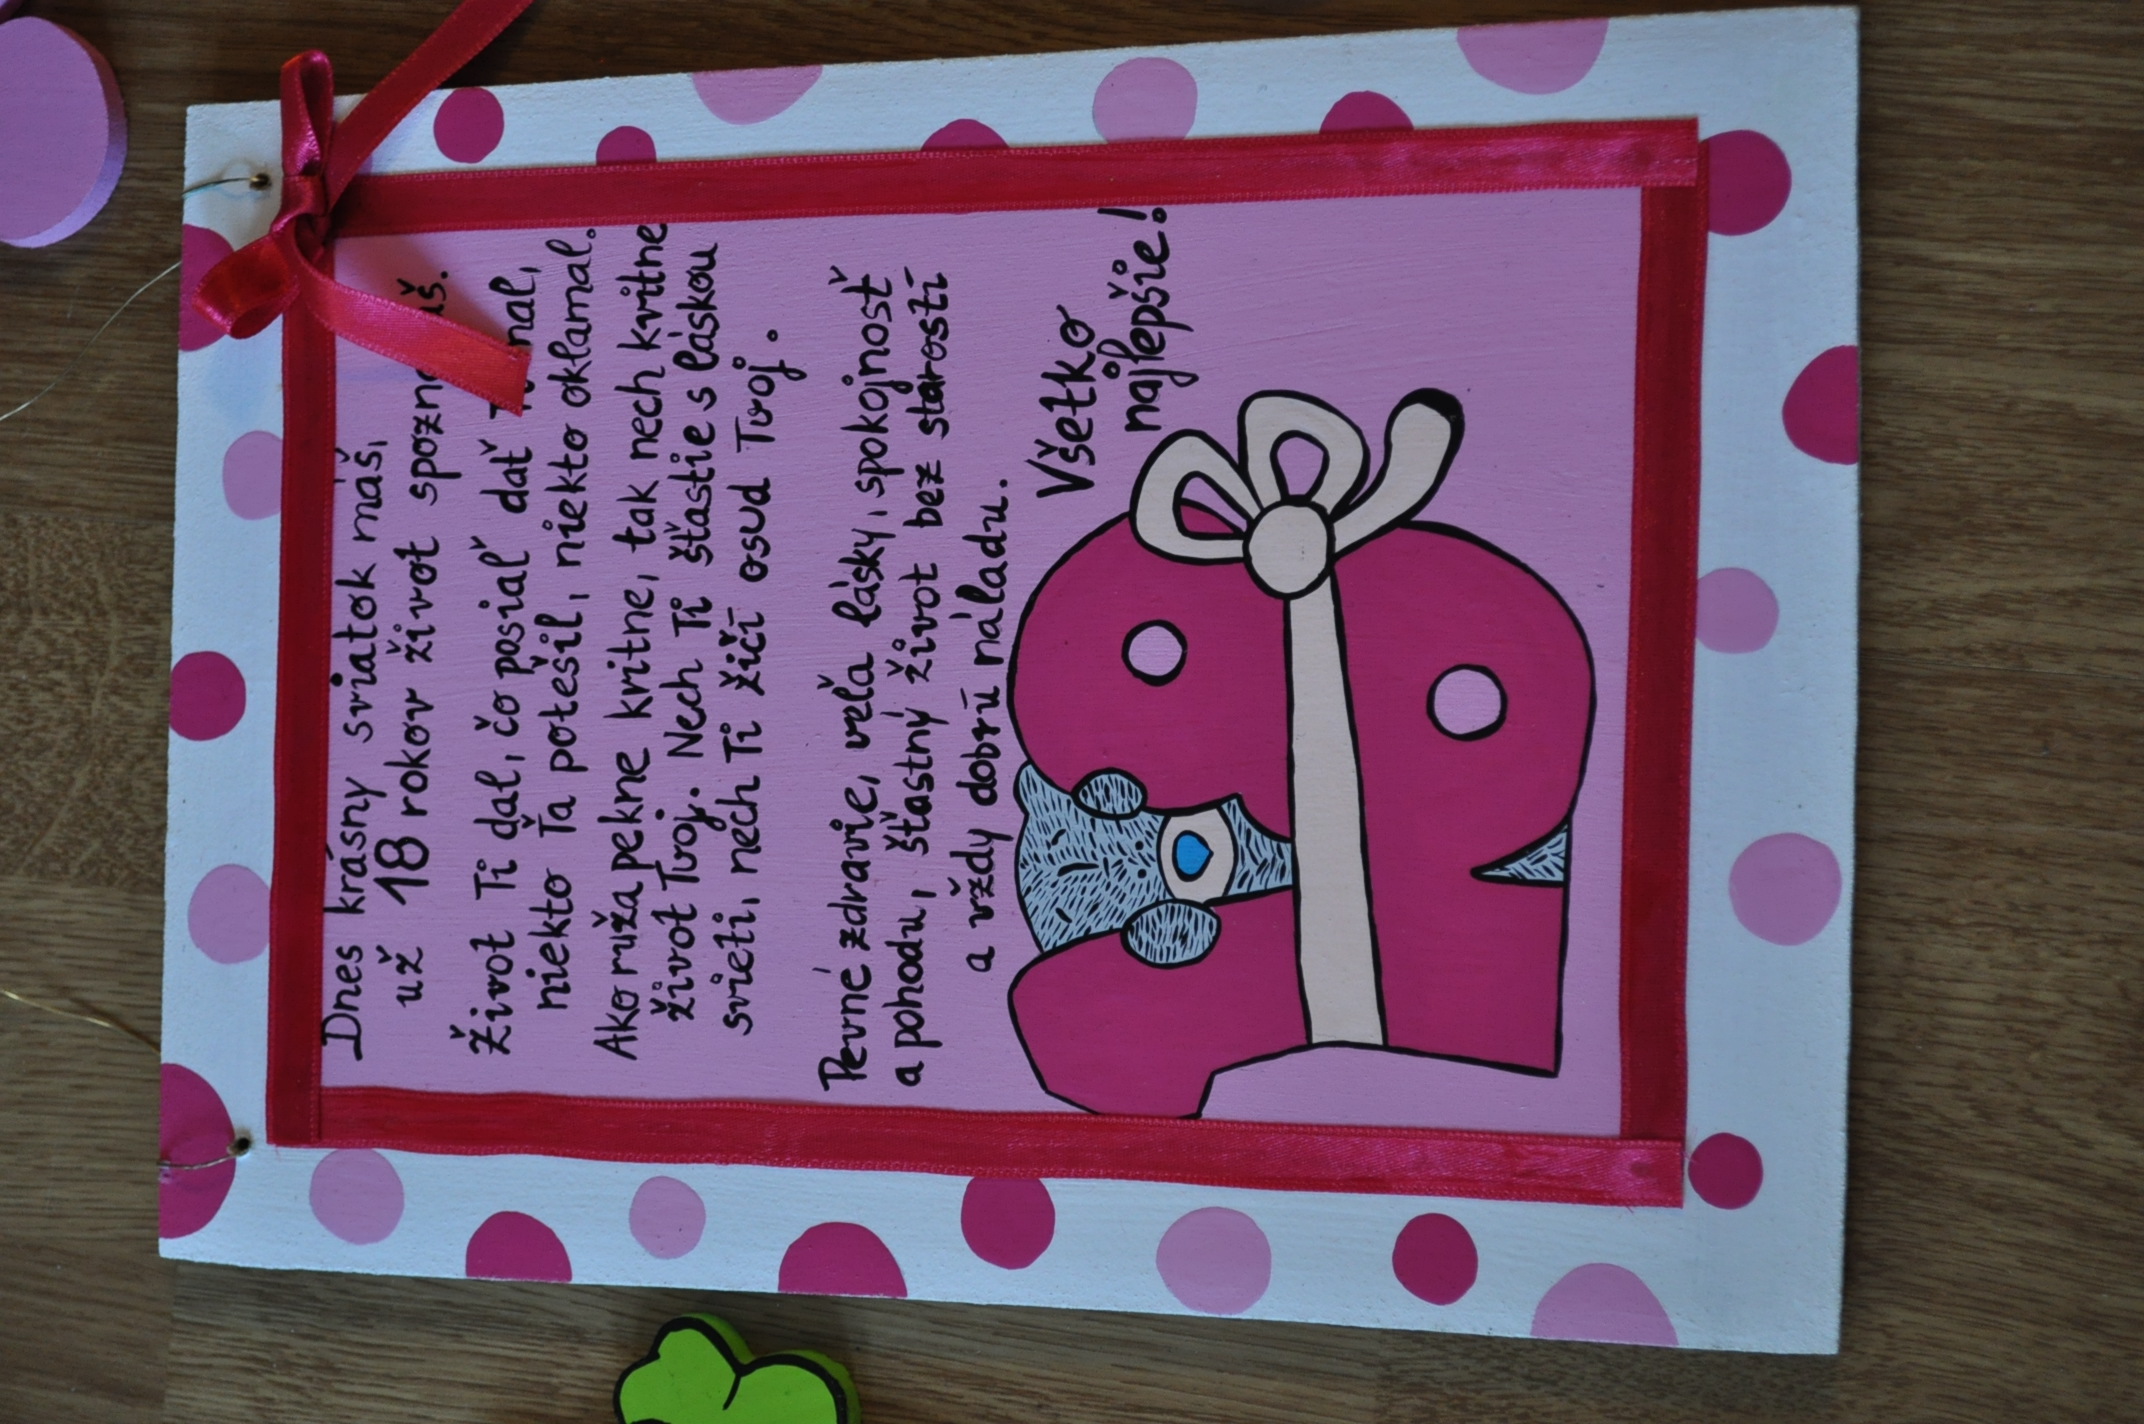 Dnes krásny sviatok máš,
už 18 rokov život
Život Ti dal, čo posiaľ dať
niekto Ťa potešil, niekto oklamal.
Ako ruža pekne kvitne, tak nech kvitne
život Tvoj. Nech Ti šťastie s láskou
svieti, nech Ti žičí osud Tvoj.
Pevné zdravie, veľa lásky, spokojnosť
a pohodu, šťastný život bez starostí
a vždy dobrú náladu.
Všetko
najlepšie!
18